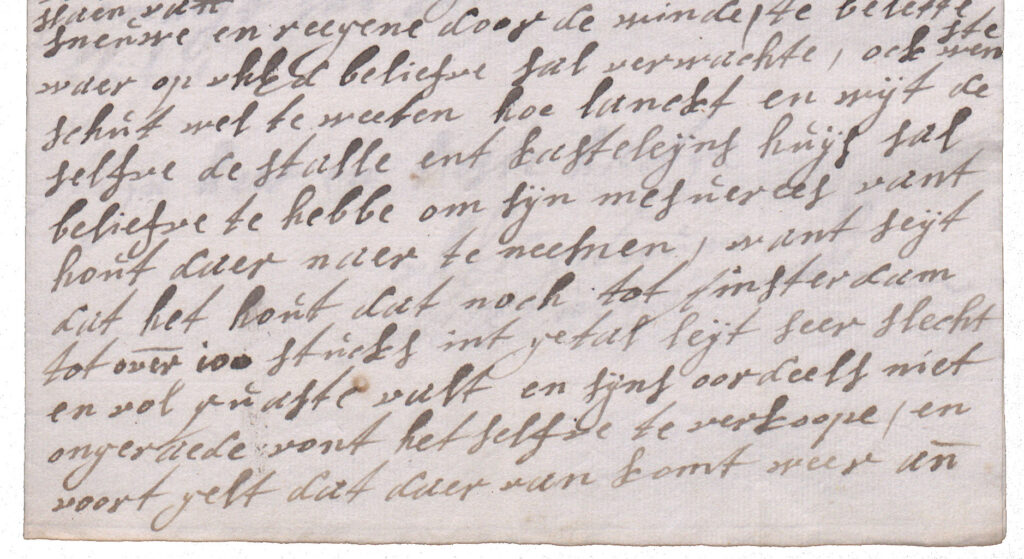 staen van
sneuwe en reegene door de winde, te belette
waer op uhEd beliefve sal verwachte, ock wen
ste
schut wel te weeten hoe lanckt en wijt de
selfve de stalle ent kasteleijns huijs sal
beliefve te hebbe om sijn mesuerees vant
hout daer naer te neemen, want seijt
dat het hout dat noch tot Amsterdam
tot over 100 stucks int getal leijt seer slecht
en vol quaste valt en sijns oordeels niet
ongeraede vont het selfve te verkoope, en
voort gelt dat daer van komt weer an